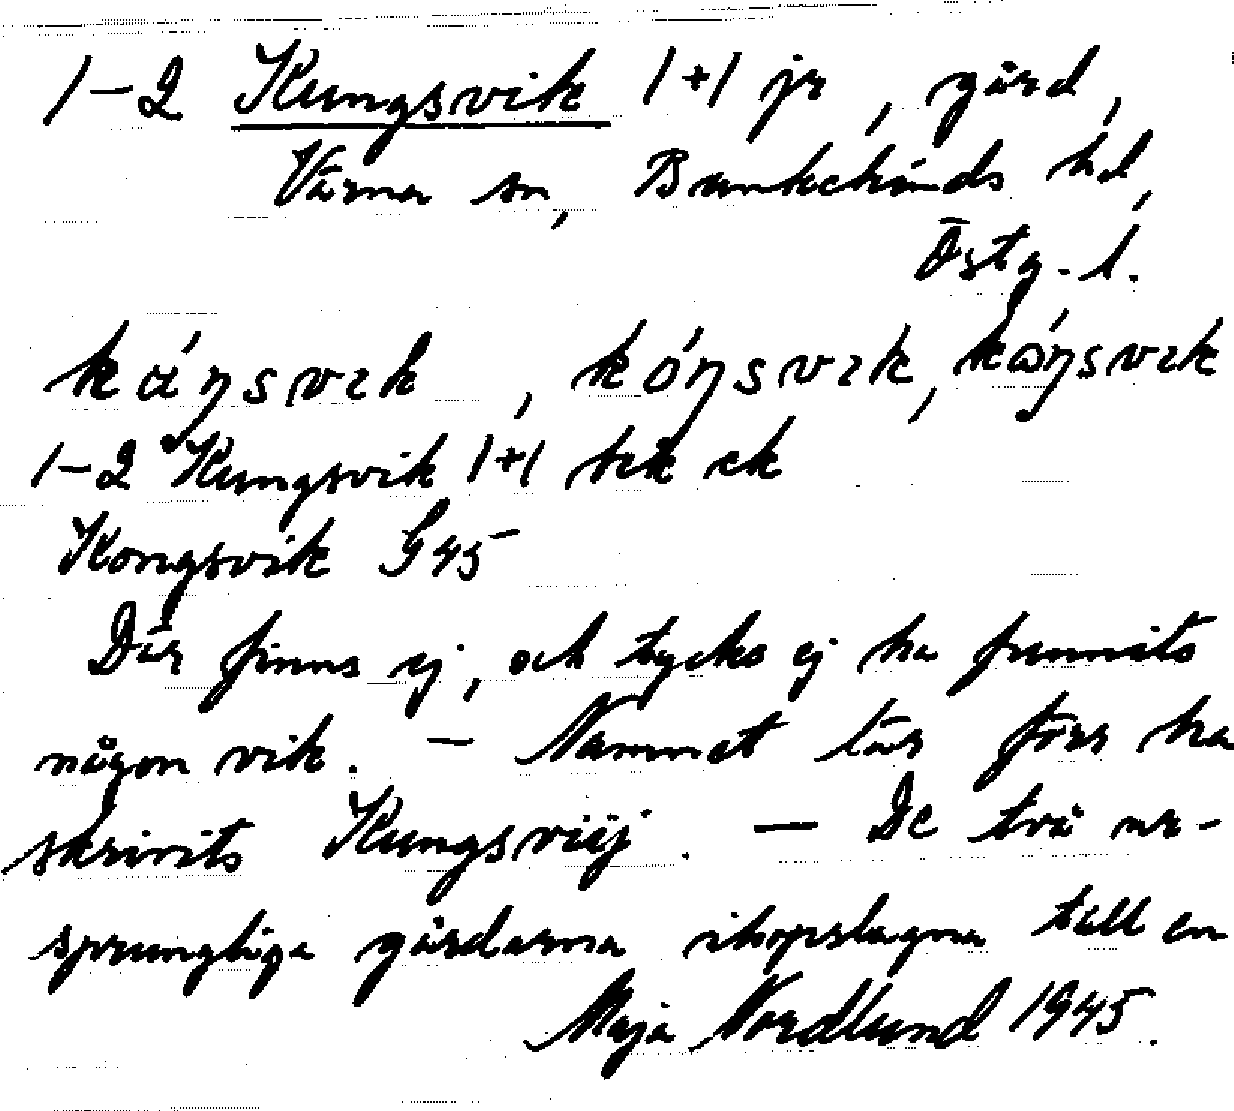 1-2 Kungsvik 1+1 jr, gård,
Värna sn, Bankekinds hd,
Östg. l.
káŋsvɩk, kóŋsvɩk, kωŋsvɩk
1-2 Kungsvik 1+1 bek ek
Kongsvik G 45
Där finns ej, och tycks ej ha funnits
någon vik. - Namnet lär förr ha
skrivits Kungsviij. - De två ur-
sprungliga gårdarna ihopslagna till en
Maja Nordlund 1945.